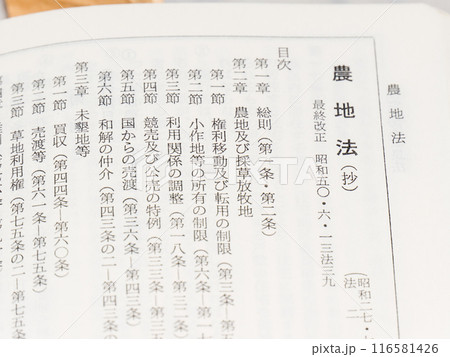 農地法
農地法（抄）
最終改正　昭和五〇・六・一三法三九
（昭和二七・
法　二
目次
第一章　総則（第一条・第二条）
第二章　農地及び採草放牧地
第一節　権利移動及び転用の制限（第三条―第五
第二節　小作地等の所有の制限（第六条―第一七
第三節　利用関係の調整（第一八条―第三二条）
第四節　競売及び公売の特例（第三三条―第三五
第五節　国からの売渡（第三六条―第四三条）
第六節　和解の仲介（第四三条の二―第四三条の
第三章　未墾地等
第一節　買収（第四四条―第六〇条）
第二節　売渡等（第六一条―第七五条）
第三節　草地利用権（第七五条の二―第七五条
pixta
116581426